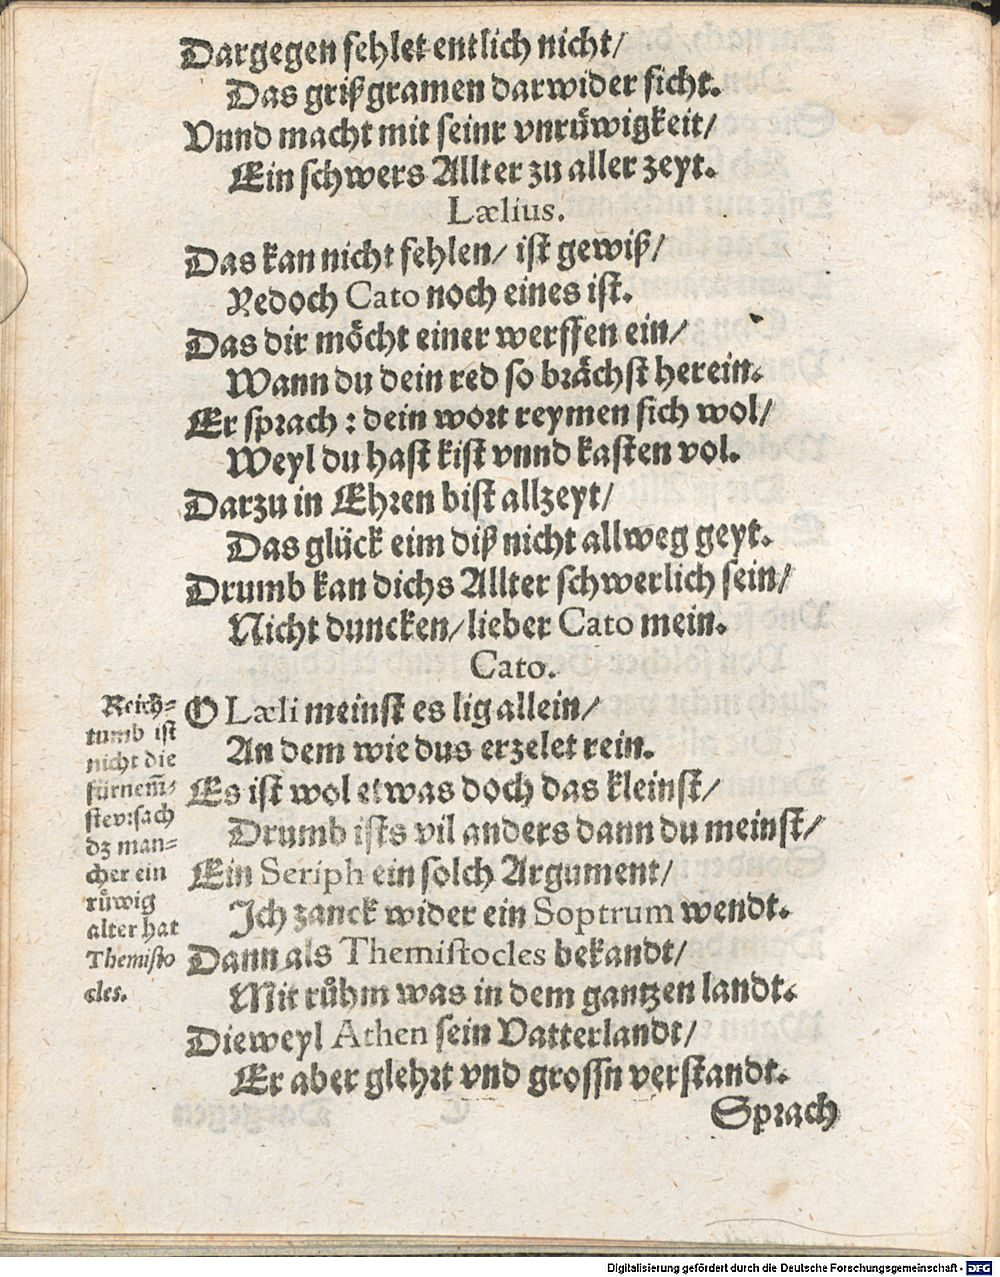 Dargegen fehlet entlich nicht/
Das grißgramen darwider ficht.
Vnnd macht mit seinr vnrůwigkeit/
Ein schwers Allter zu aller zeyt.
Lælius.
Das kan nicht fehlen/ ist gewiß/
Jedoch Cato noch eines ist.
Das dir möcht einer werffen ein/
Wann du dein red so brächst herein.
Er sprach : dein wort reymen sich wol/
Weyl du hast kist vnnd kasten vol.
Darzu in Ehren bist allzeyt/
Das glück eim diß nicht allweg geyt.
Drumb kan dichs Allter schwerlich sein/
Nicht duncken/ lieber Cato mein.
Cato.
O Læli meinst es lig allein/
An dem wie dus erzelet rein.
Es ist wol etwas doch das kleinst/
Drumb ists vil anders dann du meinst/
Ein Seriph ein solch Argument/
Ich zanck wider ein Soptrum wendt.
Dann als Themistocles bekandt/
Mit růhm was in dem gantzen landt.
Dieweyl Athen sein Vatterlandt/
Er aber glehrt vnd grossn verstandt.
Sprach
Reich=
tumb ist
nicht die
fürnem̃=
ste vrsach
dz man=
cher ein
růwig
alter hat
Themisto
cles.
Digitalisierung gefördert durch die Deutsche Forschungsgemeinschaft - DFG